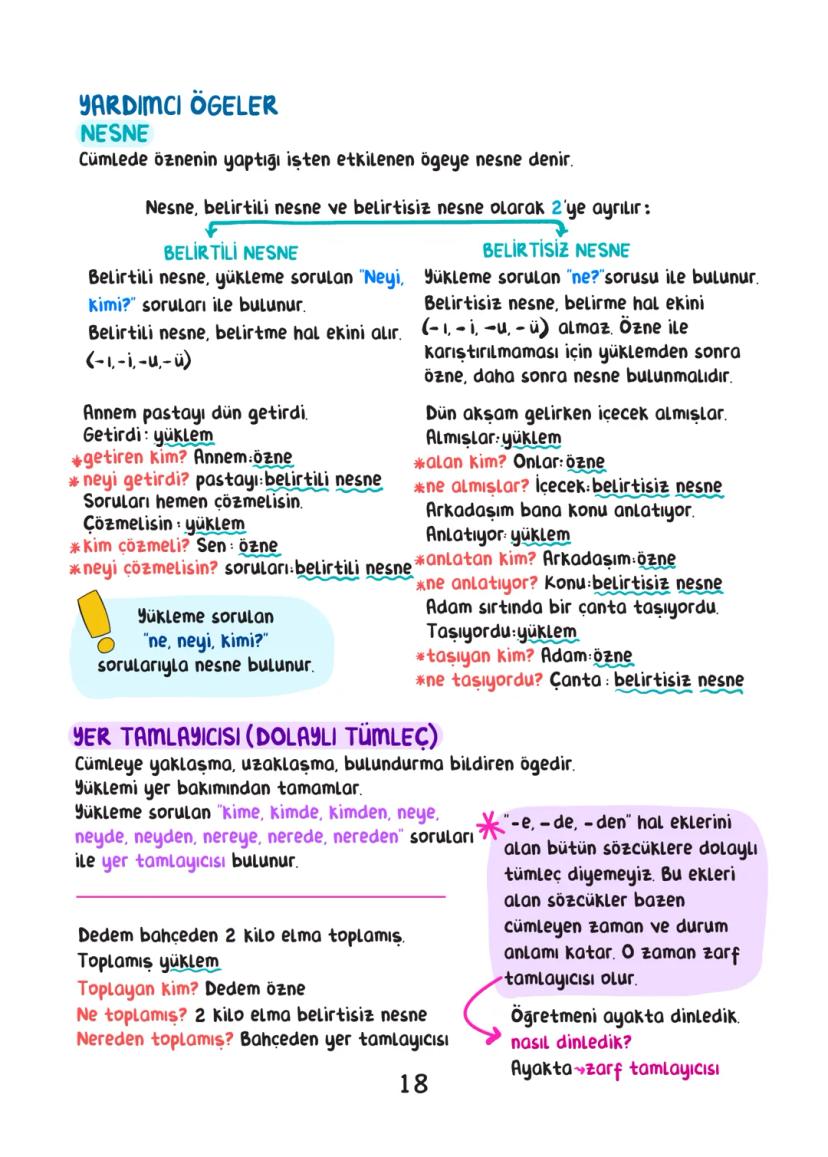 YARDIMCI ÖGELER
NESNE
Cümlede öznenin yaptığı işten etkilenen ögeye nesne denir.
Nesne, belirtili nesne ve belirtisiz nesne olarak 2'ye ayrılır:
BELİRTİLİ NESNE
Belirtili nesne, yükleme sorulan "Neyi,
kimi?" soruları ile bulunur.
Belirtili nesne, belirtme hal ekini alır.
(-ı,-i,-u,-ü)
Annem pastayı dün getirdi.
Getirdi: yüklem
*getiren kim? Annem:özne
*neyi getirdi? pastayı:belirtili nesne
Soruları hemen çözmelisin.
Çözmelisin: yüklem
*kim çözmeli? Sen: özne
*neyi çözmelisin? soruları:belirtili nesne
Yükleme sorulan
"ne, neyi, kimi?"
sorularıyla nesne bulunur.
BELİRTİSİZ NESNE
Yükleme sorulan "ne?"sorusu ile bulunur.
Belirtisiz nesne, belirme hal ekini
(-ı, -i, -u, -ü) almaz. Özne ile
karıştırılmaması için yüklemden sonra
özne, daha sonra nesne bulunmalıdır.
Dün akşam gelirken içecek almışlar.
Almışlar:yüklem
*alan kim? Onlar:özne
*ne almışlar? İçecek:belirtisiz nesne
Arkadaşım bana konu anlatıyor.
Anlatıyor: yüklem
*anlatan kim? Arkadaşım:özne
*ne anlatıyor? Konu:belirtisiz nesne
Adam sırtında bir çanta taşıyordu.
Taşıyordu:yüklem
*taşıyan kim? Adam:özne
*ne taşıyordu? Çanta: belirtisiz nesne
YER TAMLAYICISI (DOLAYLI TÜMLEÇ)
Cümleye yaklaşma, uzaklaşma, bulundurma bildiren ögedir.
Yüklemi yer bakımından tamamlar.
Yükleme sorulan "kime, kimde, kimden, neye,
neyde, neyden, nereye, nerede, nereden" soruları
ile yer tamlayıcısı bulunur.
Dedem bahçeden 2 kilo elma toplamış.
Toplamış yüklem
Toplayan kim? Dedem özne
Ne toplamış? 2 kilo elma belirtisiz nesne
Nereden toplamış? Bahçeden yer tamlayıcısı
*"-e, -de, -den" hal eklerini
alan bütün sözcüklere dolaylı
tümleç diyemeyiz. Bu ekleri
alan sözcükler bazen
cümleyen zaman ve durum
anlamı katar. O zaman zarf
tamlayıcısı olur.
Öğretmeni ayakta dinledik.
nasıl dinledik?
Ayakta→zarf tamlayıcısı
18